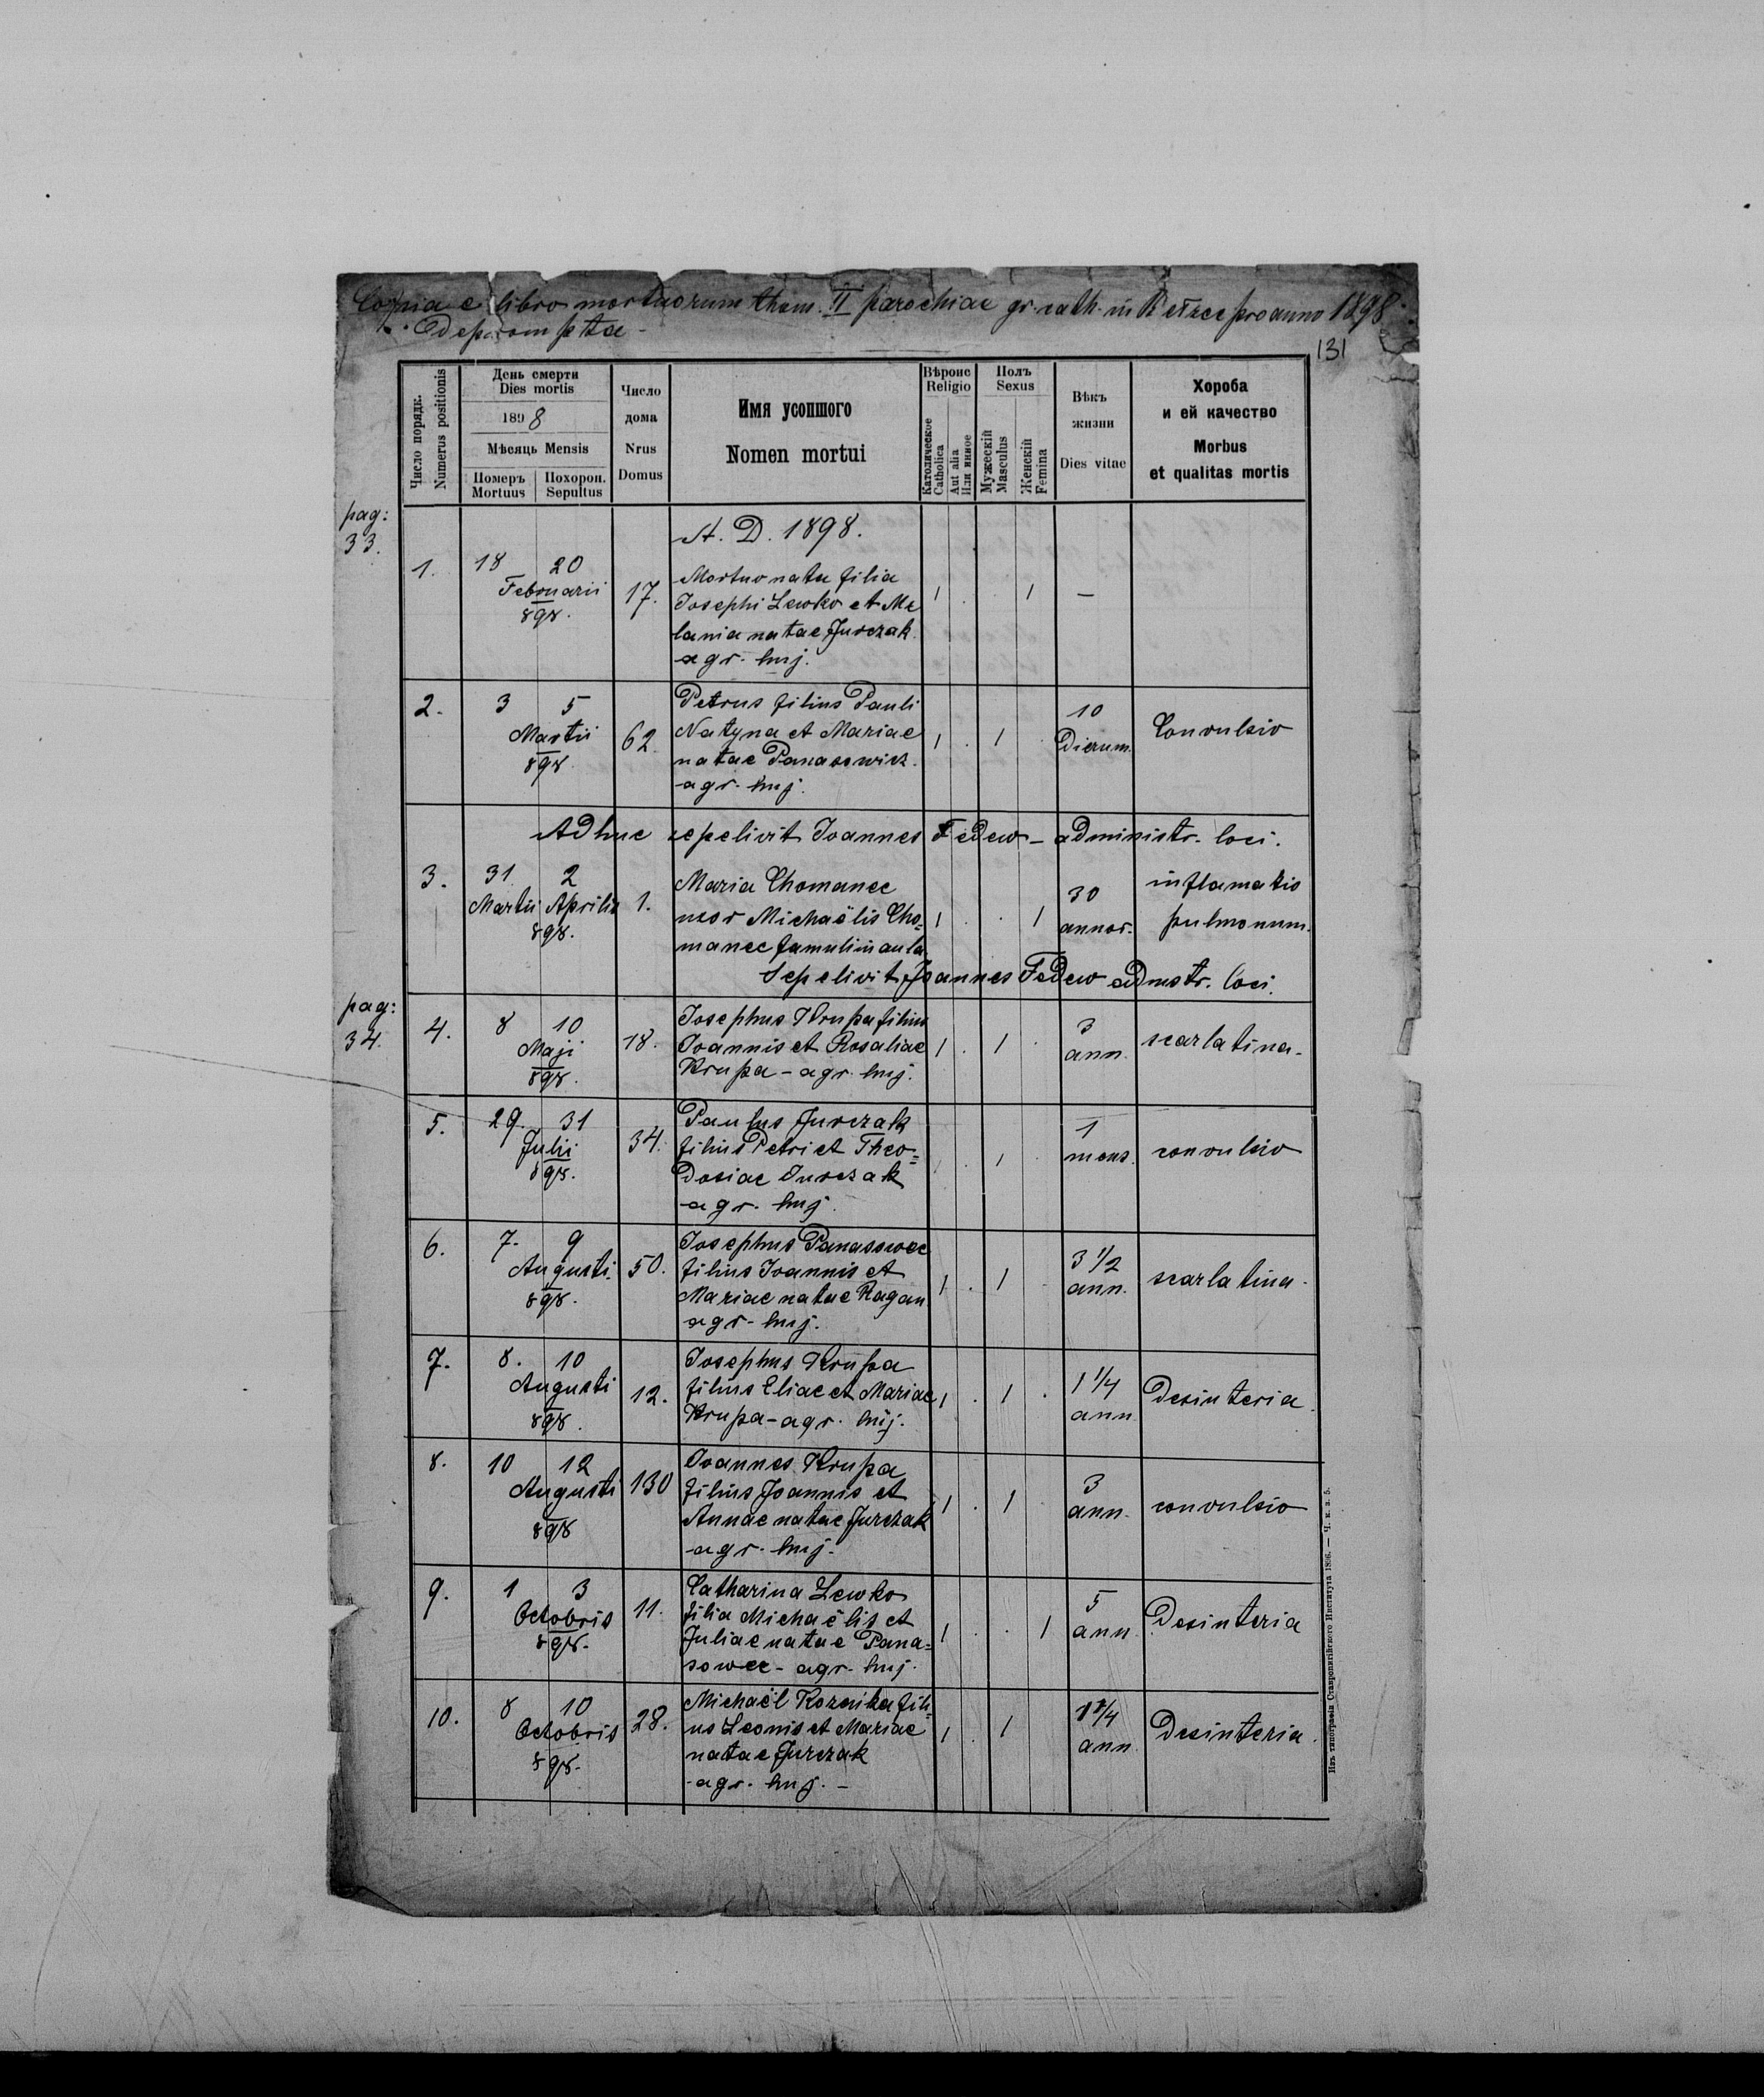 Copia e libro mortuorum thom. II parochiae gr. cath. in pro anno 1898.
Deprompta -
131
Число порядк. Numerus positionis
День смерти
Dies mortis
1898
Мѣсяць Mensis
Померъ Mortuus
Похорон. Sepultus
Число дома Nrus Domus
Имя усопшого
Nomen mortui
Вѣроис Religio
Католическое Catholica
Aut alia Или инное
Полъ Sexus
Мужескій Masculus
Женскій Femina
Вѣкъ жизни Dies vitae
Хороба и ей качество
Morbus et qualitas mortis
pag: 33.
A. D. 1898.
1. 18 20 Februarii 898. 17.
Mortuo nata filia
Josephi Lewko et Me
lania natae Jurczak
agr. huj.
1 . 1 —
2. 3 5 Martii 898 62.
Petrus filius Pauli
Natyna et Mariae
natae Panasowicz.
agr. huj.
1 . 1 . 10 Dierum. Convulsio
Adhuc sepelivit Joannes Fedew - administr. loci.
3. 31 Martii 2 Aprilis 898. 1.
Maria Chomanec
uxor Michaëlis Cho=
manec famuli in aula
1 . . 1 30 annor. inflamatio pulmonum.
Sepelivit Joannes Fedew admstr. loci.
pag: 34.
4. 8 10 Maji 898. 18.
Josephus Krupa filius
Joannis et Rosaliae
Krupa - agr. huj.
1 . 1 . 3 ann. scarlatina -
5. 29. 31 Julii 898. 34.
Paulus Jurczak
filius Petri et Theo=
dosiae Jurczak
agr. huj.
1 . 1 . 1 mens. convulsio
6. 7. 9 Augusti 898. 50.
Josephus Panasowec
filius Joannis et
Mariae natae Ragan
agr. huj.
1 . 1 . 3 1/2 ann. scarlatina.
7. 8. 10 Augusti 898. 12.
Josephus Krupa
filius Eliae et Mariae
Krupa - agr. huj.
1 . 1 . 1 1/4 ann. Desinteria.
8. 10 12 Augusti 898 130
Joannes Krupa
filius Joannis et
Annae natae Jurczak
agr. huj.
1 . 1 . 3 ann. convulsio
9. 1 3 Octobris 898. 11.
Catharina Lewko
filia Michaëlis et
Juliae natae Pana=
sowec - agr. huj.
1 . . 1 5 ann. Desinteria
10. 8 10 Octobris 898. 28.
Michaël fili=
us Leonis et Mariae
natae Jurczak
agr. huj. -
1 . 1 ann. Desinteria.
Изъ типографіи Ставропигійского Института 1896. — Ч. к. а. 5.